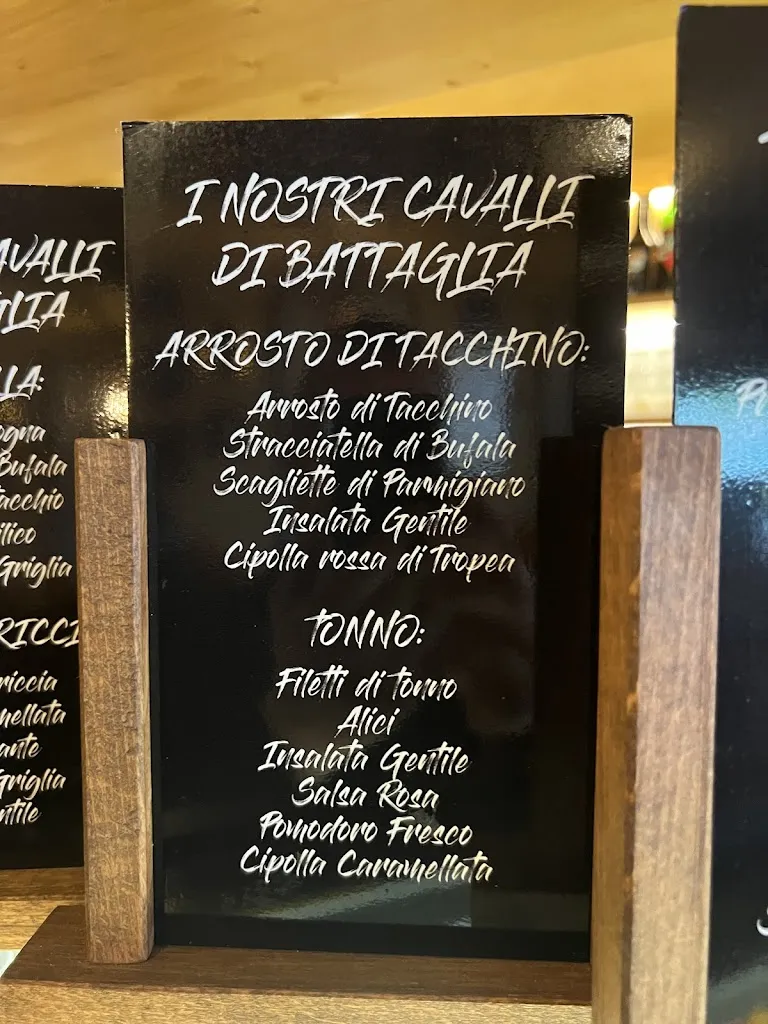 I NOSTRI CAVALLI
DI BATTAGLIA
ARROSTO DI TACCHINO:
Arrosto di Tacchino
Stracciatella di Bufala
Scagliette di Parmigiano
Insalata Gentile
Cipolla rossa di Tropea
TONNO:
Filetti di tonno
Alici
Insalata Gentile
Salsa Rosa
Pomodoro Fresco
Cipolla Caramellata
AVALLI
GLIA
LLA:
ogna
Bufala
tacchio
ilico
Griglia
RICCI
riccia
mellata
ante
Griglia
ntile